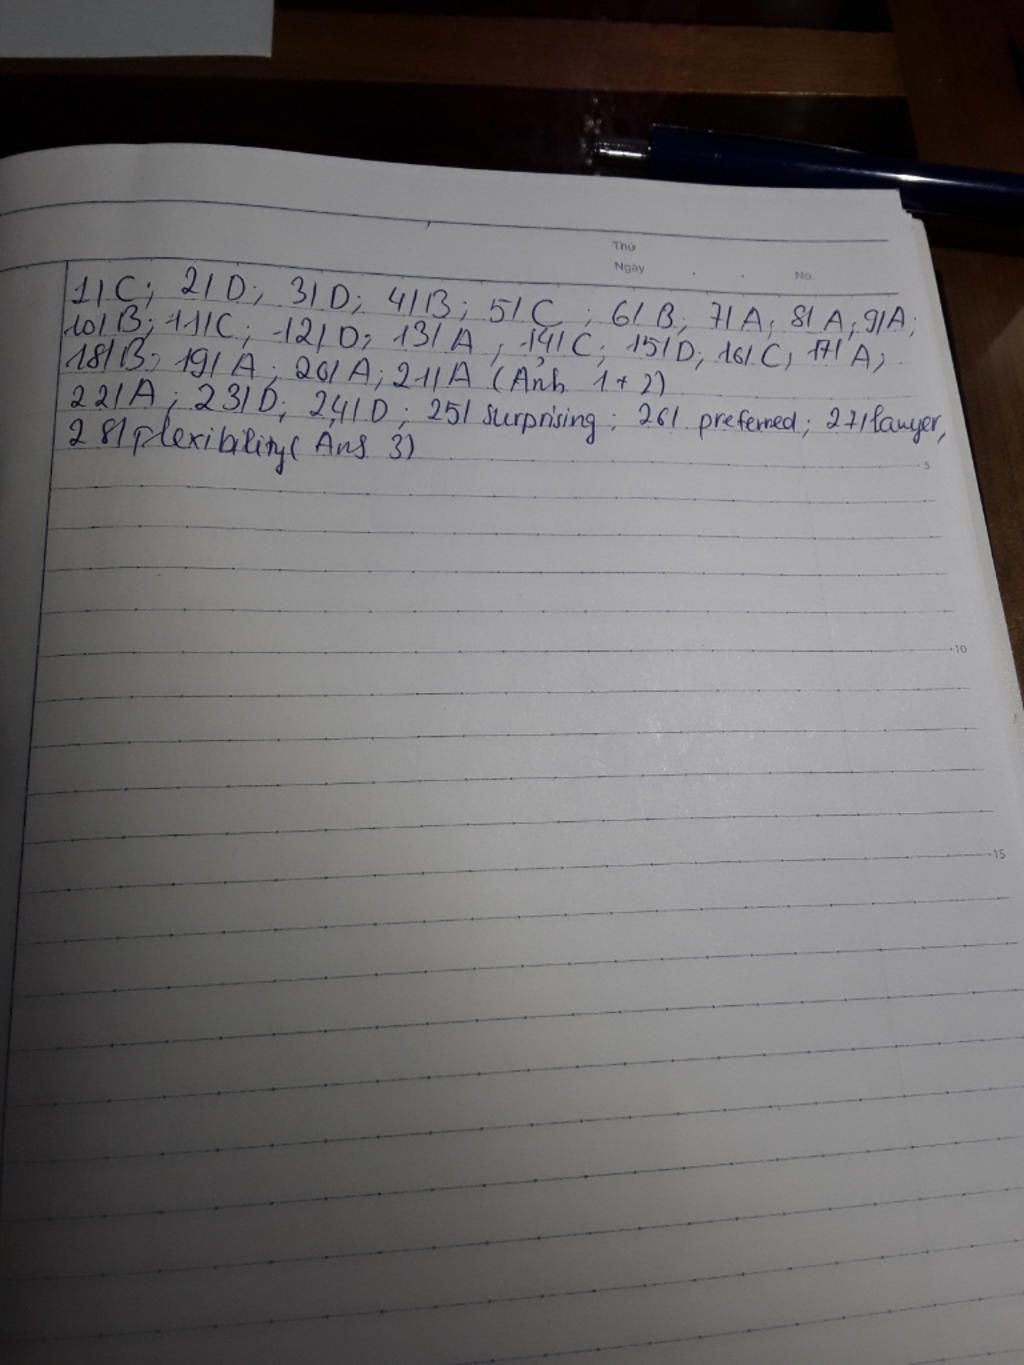 Thứ
Ngày . . No.
1/ C; 2/ D; 3/ D; 4/ B; 5/ C ; 6/ B; 7/ A; 8/ A; 9/ A;
10/ B; 11/ C; 12/ D; 13/ A ; 14/ C; 15/ D; 16/ C; 17/ A;
18/ B; 19/ A; 20/ A; 21/ A (Anh 1+2)
22/ A; 23/ D; 24/ D; 25/ surprising; 26/ preferred; 27/ lawyer,
28/ flexibility( Anh 3)
5
10
15